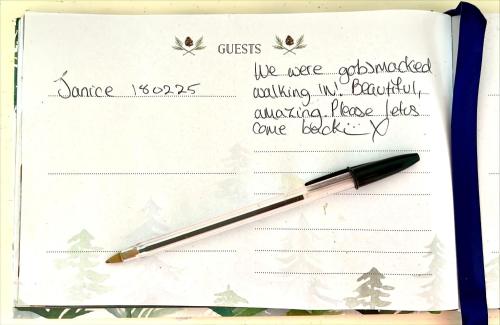 GUESTS
Janice 180225
We were gobsmacked
walking IN! Beautiful,
amazing. Please let us
come back :) X